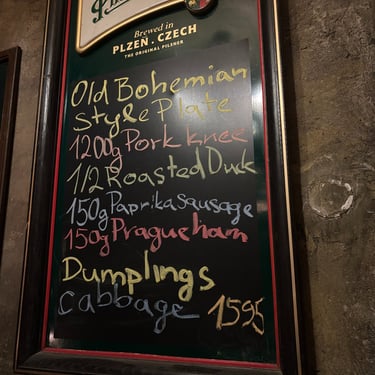 Brewed in
PLZEŇ · CZECH
THE ORIGINAL PILSNER
Old Bohemian
Style Plate
1200g Pork knee
1/2 Roasted Duck
150g Paprika sausage
150g Prague ham
Dumplings
cabbage 1595